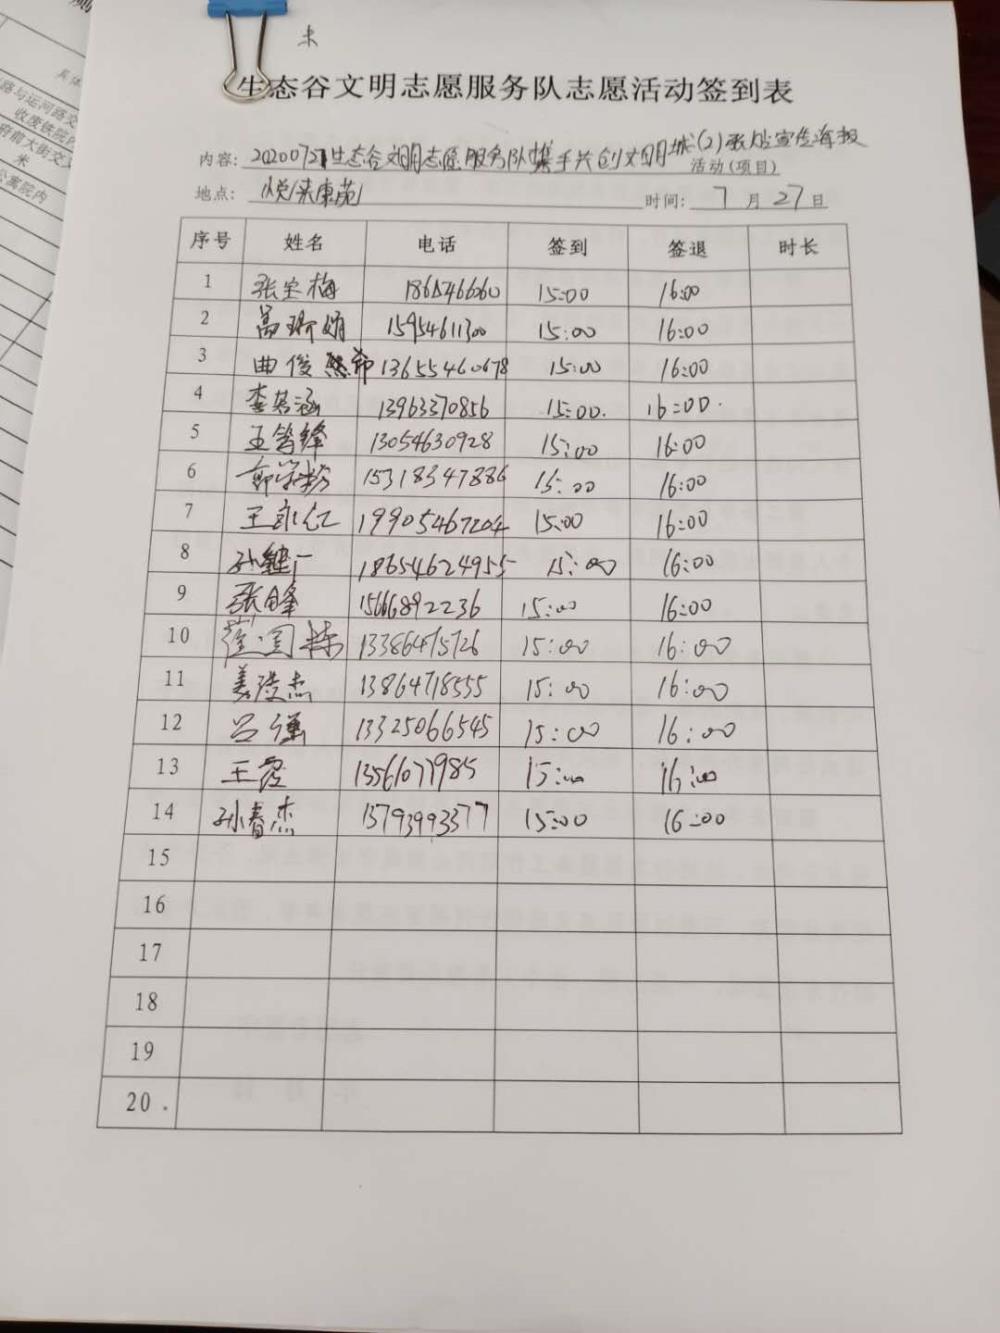 未
生态谷文明志愿服务队志愿活动签到表
内容: 20200727生态谷文明志愿服务队携手共创文明城(2)张贴宣传海报 活动(项目)
地点: 悦来康苑 时间: 7 月 27 日
序号 姓名 电话 签到 签退 时长
1 张宝梅 15:00 16:00
2 15954611300 15:00 16:00
3 曲俊 13655460678 15:00 16:00
4 李若涵 13963370856 15:00. 16:00.
5 13054630928 15:00 16:00
6 15318347886 15:00 16:00
7 王永仁 19905467204 15:00 16:00
8 孙继广 18654624955 15:00 16:00
9 张峰 15666892236 15:00 16:00
10 国栋 13386475726 15:00 16:00
11 姜凌杰 13864718555 15:00 16:00
12 吕强 13325066545 15:00 16:00
13 王霞 13561077985 15:00 16:00
14 孙春杰 15793993377 15:00 16:00
15
16
17
18
19
20
路与运河路交
收废铁院内
府前大街交叉
米
公寓院内